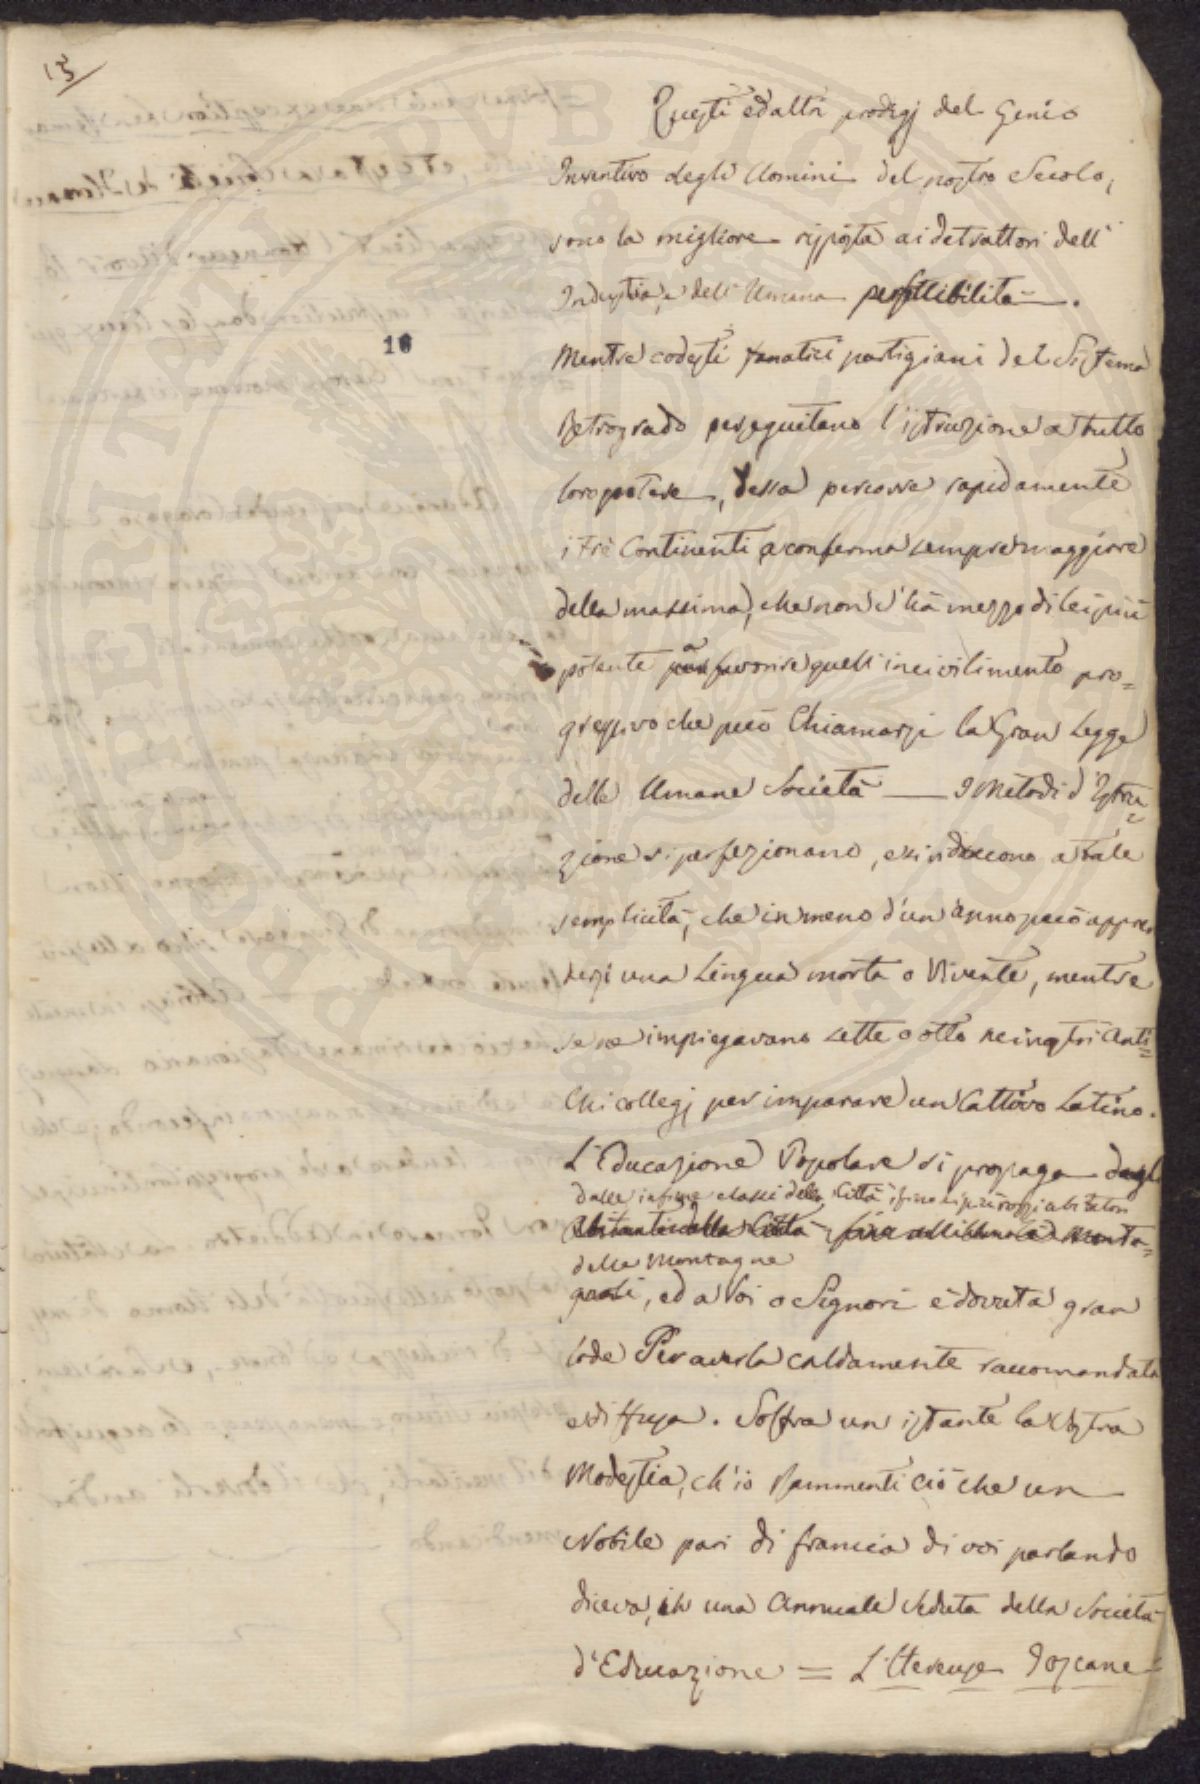 13
Questi ed altri prodigj del Genio
Inventivo degli Uomini del nostro Secolo,
sono la migliore risposta ai detrattori dell'
Industria, e dell'Umana perfettibilità.
16
Mentre codesti fanatici partigiani del Sistema
Retrogrado perseguitano l'istruzione a tutto
loro potere, dessa percorre rapidamente
i trè Continenti a conferma sempre maggiore
della massima, che non v'ha mezzo di lei più
potente a favorire quell'incivilimento pro=
gressivo che può Chiamarsi la Gran Legge
delle Umane Società — I Metodi d'Istru=
zione si perfezionano, e si riducono a tale
semplicità, che in meno d'un anno può appren
dersi una Lingua morta o Vivente, mentre
se ne impiegavano sette o otto nei nostri Anti=
Chi collegj per imparare un Cattivo Latino.
L'Educazione Popolare si propaga dagl
dalle infime classi della Città fino ai più rozzi abitatori
Abitanti della Città fino all'ultimo Monta=
delle Montagne
nari, ed a Voi o Signori è dovuta gran
lode Per averla caldamente raccomandata
e diffusa. Soffra un istante la Vostra
Modestia, ch'io Rammenti ciò che un
Nobile pari di francia di voi parlando
diceva, in una Annuale Seduta della Società
d'Educazione = L'Heureuse Toscane